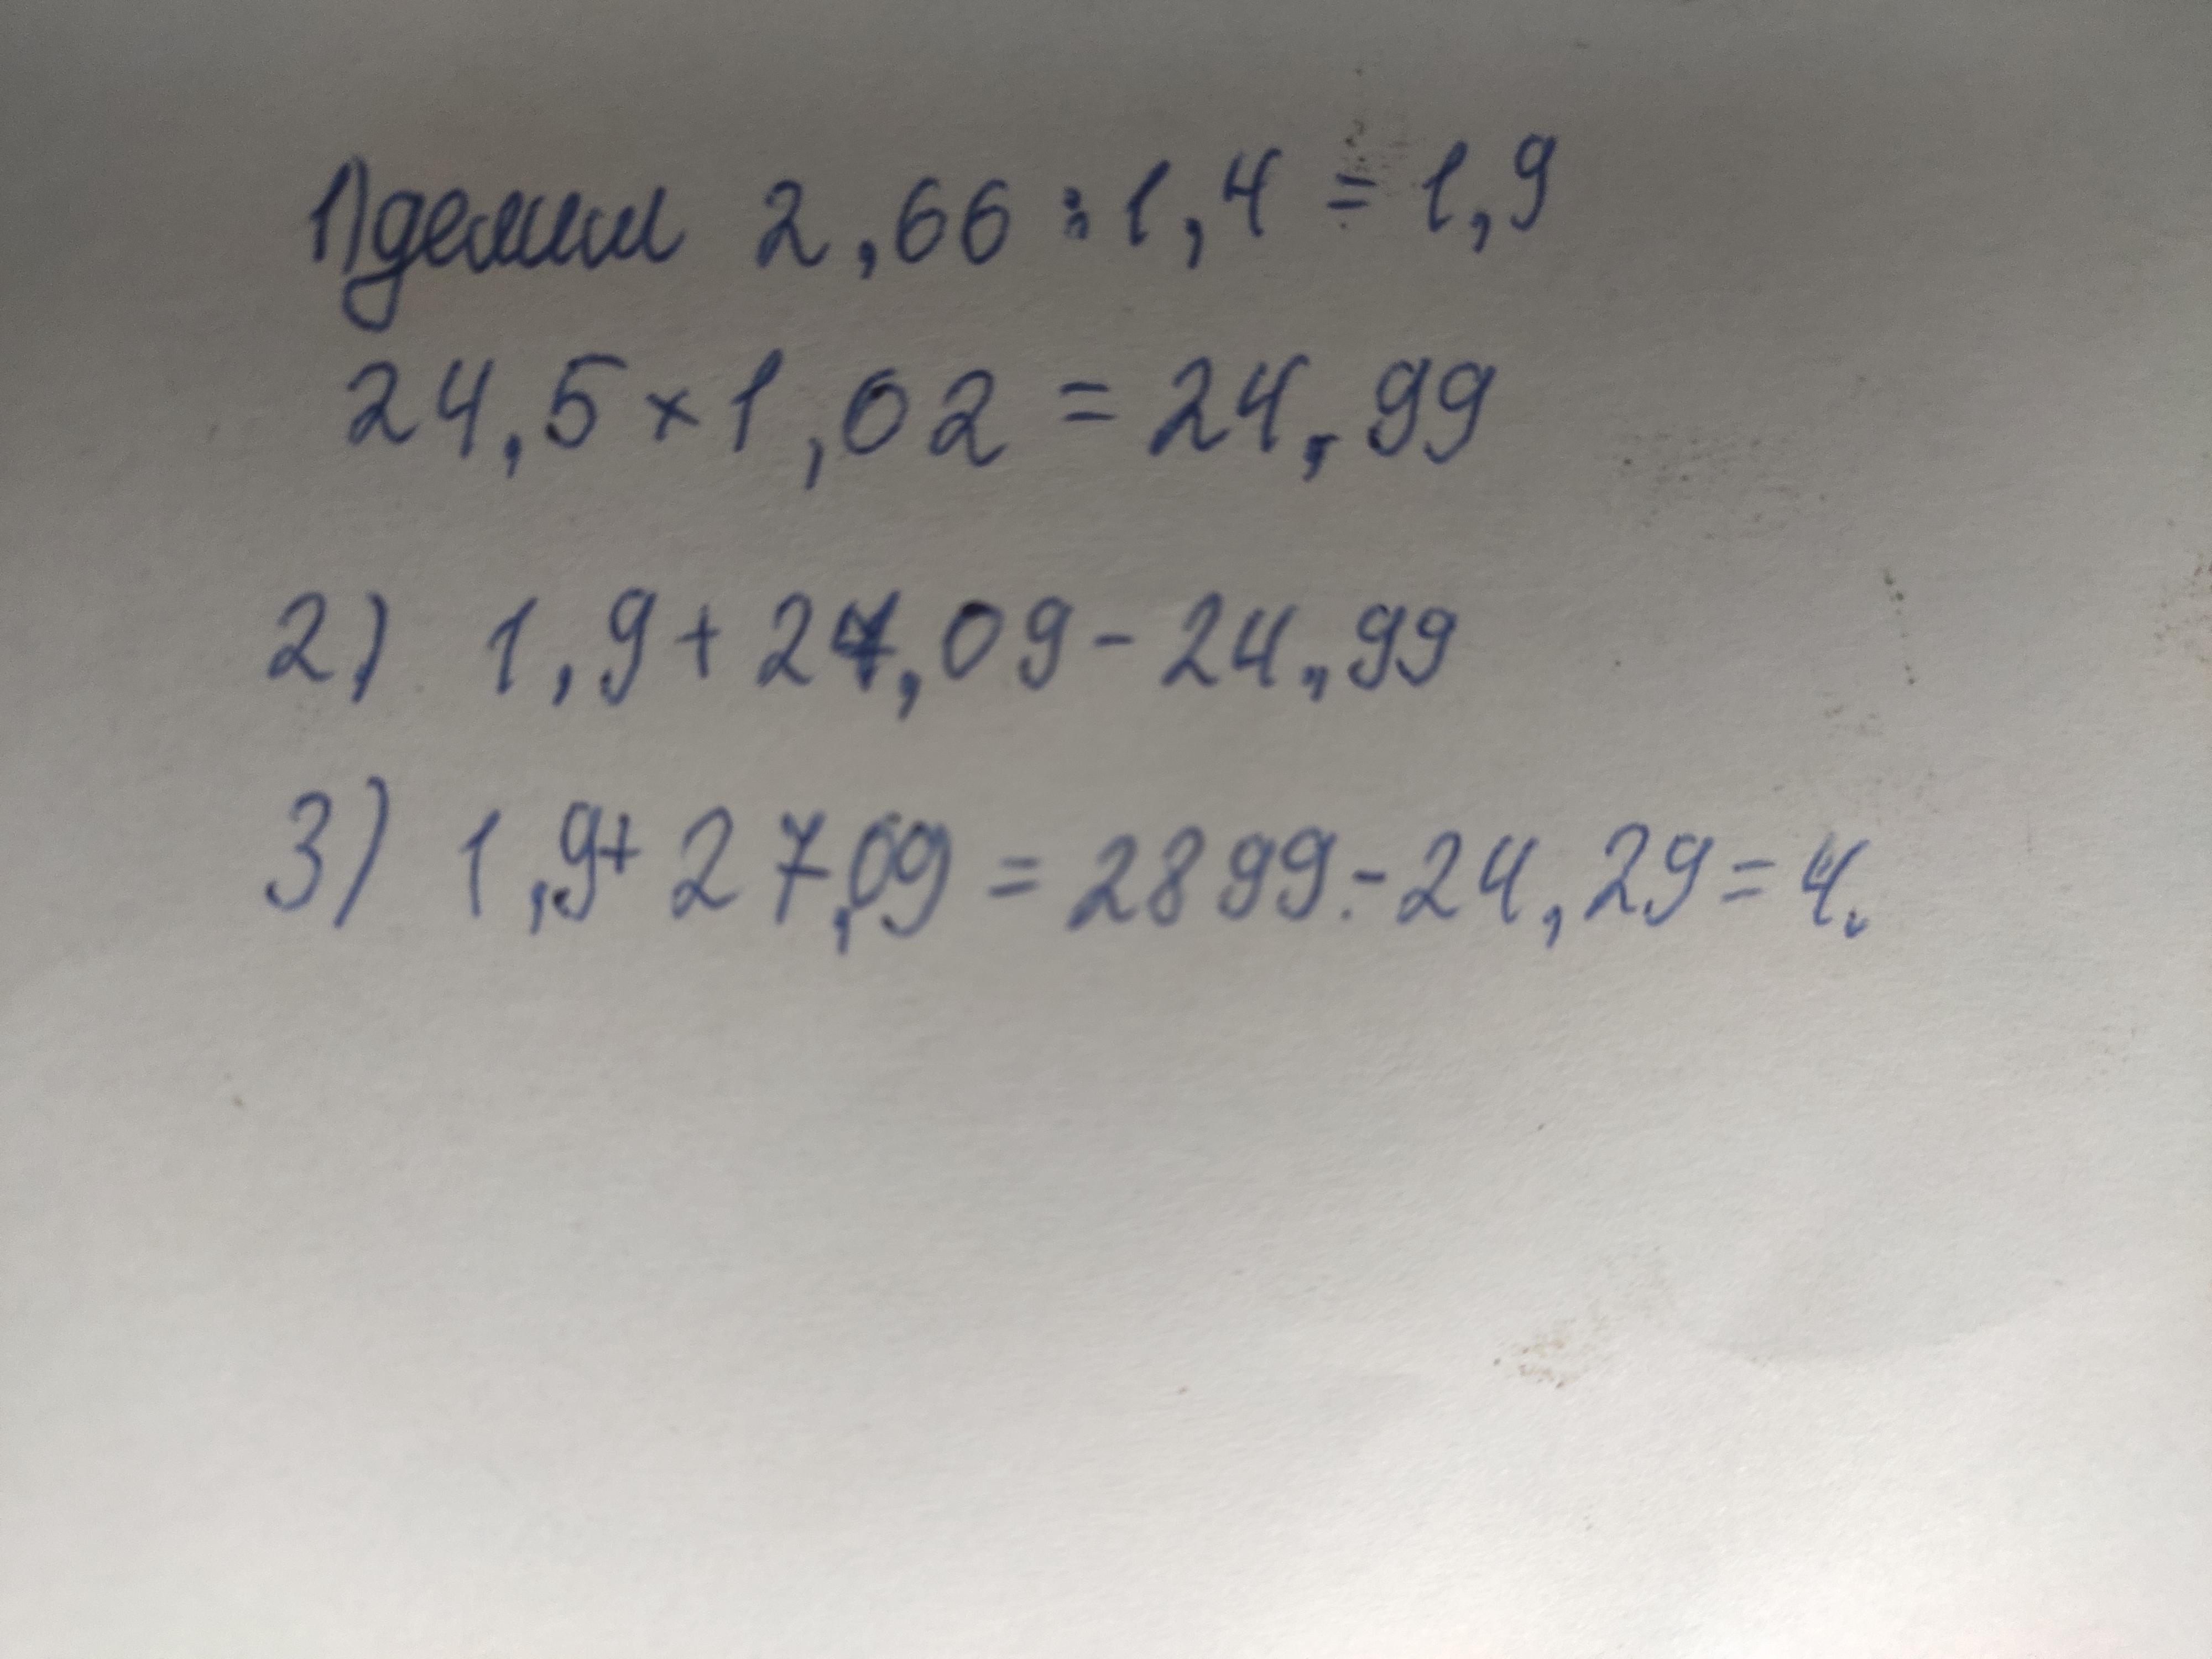 1) делим 2,66 : 1,4 = 1,9
24,5 × 1,02 = 24,99
2) 1,9 + 27,09 - 24,99
3) 1,9 + 27,09 = 2899 - 24,29 = 4.